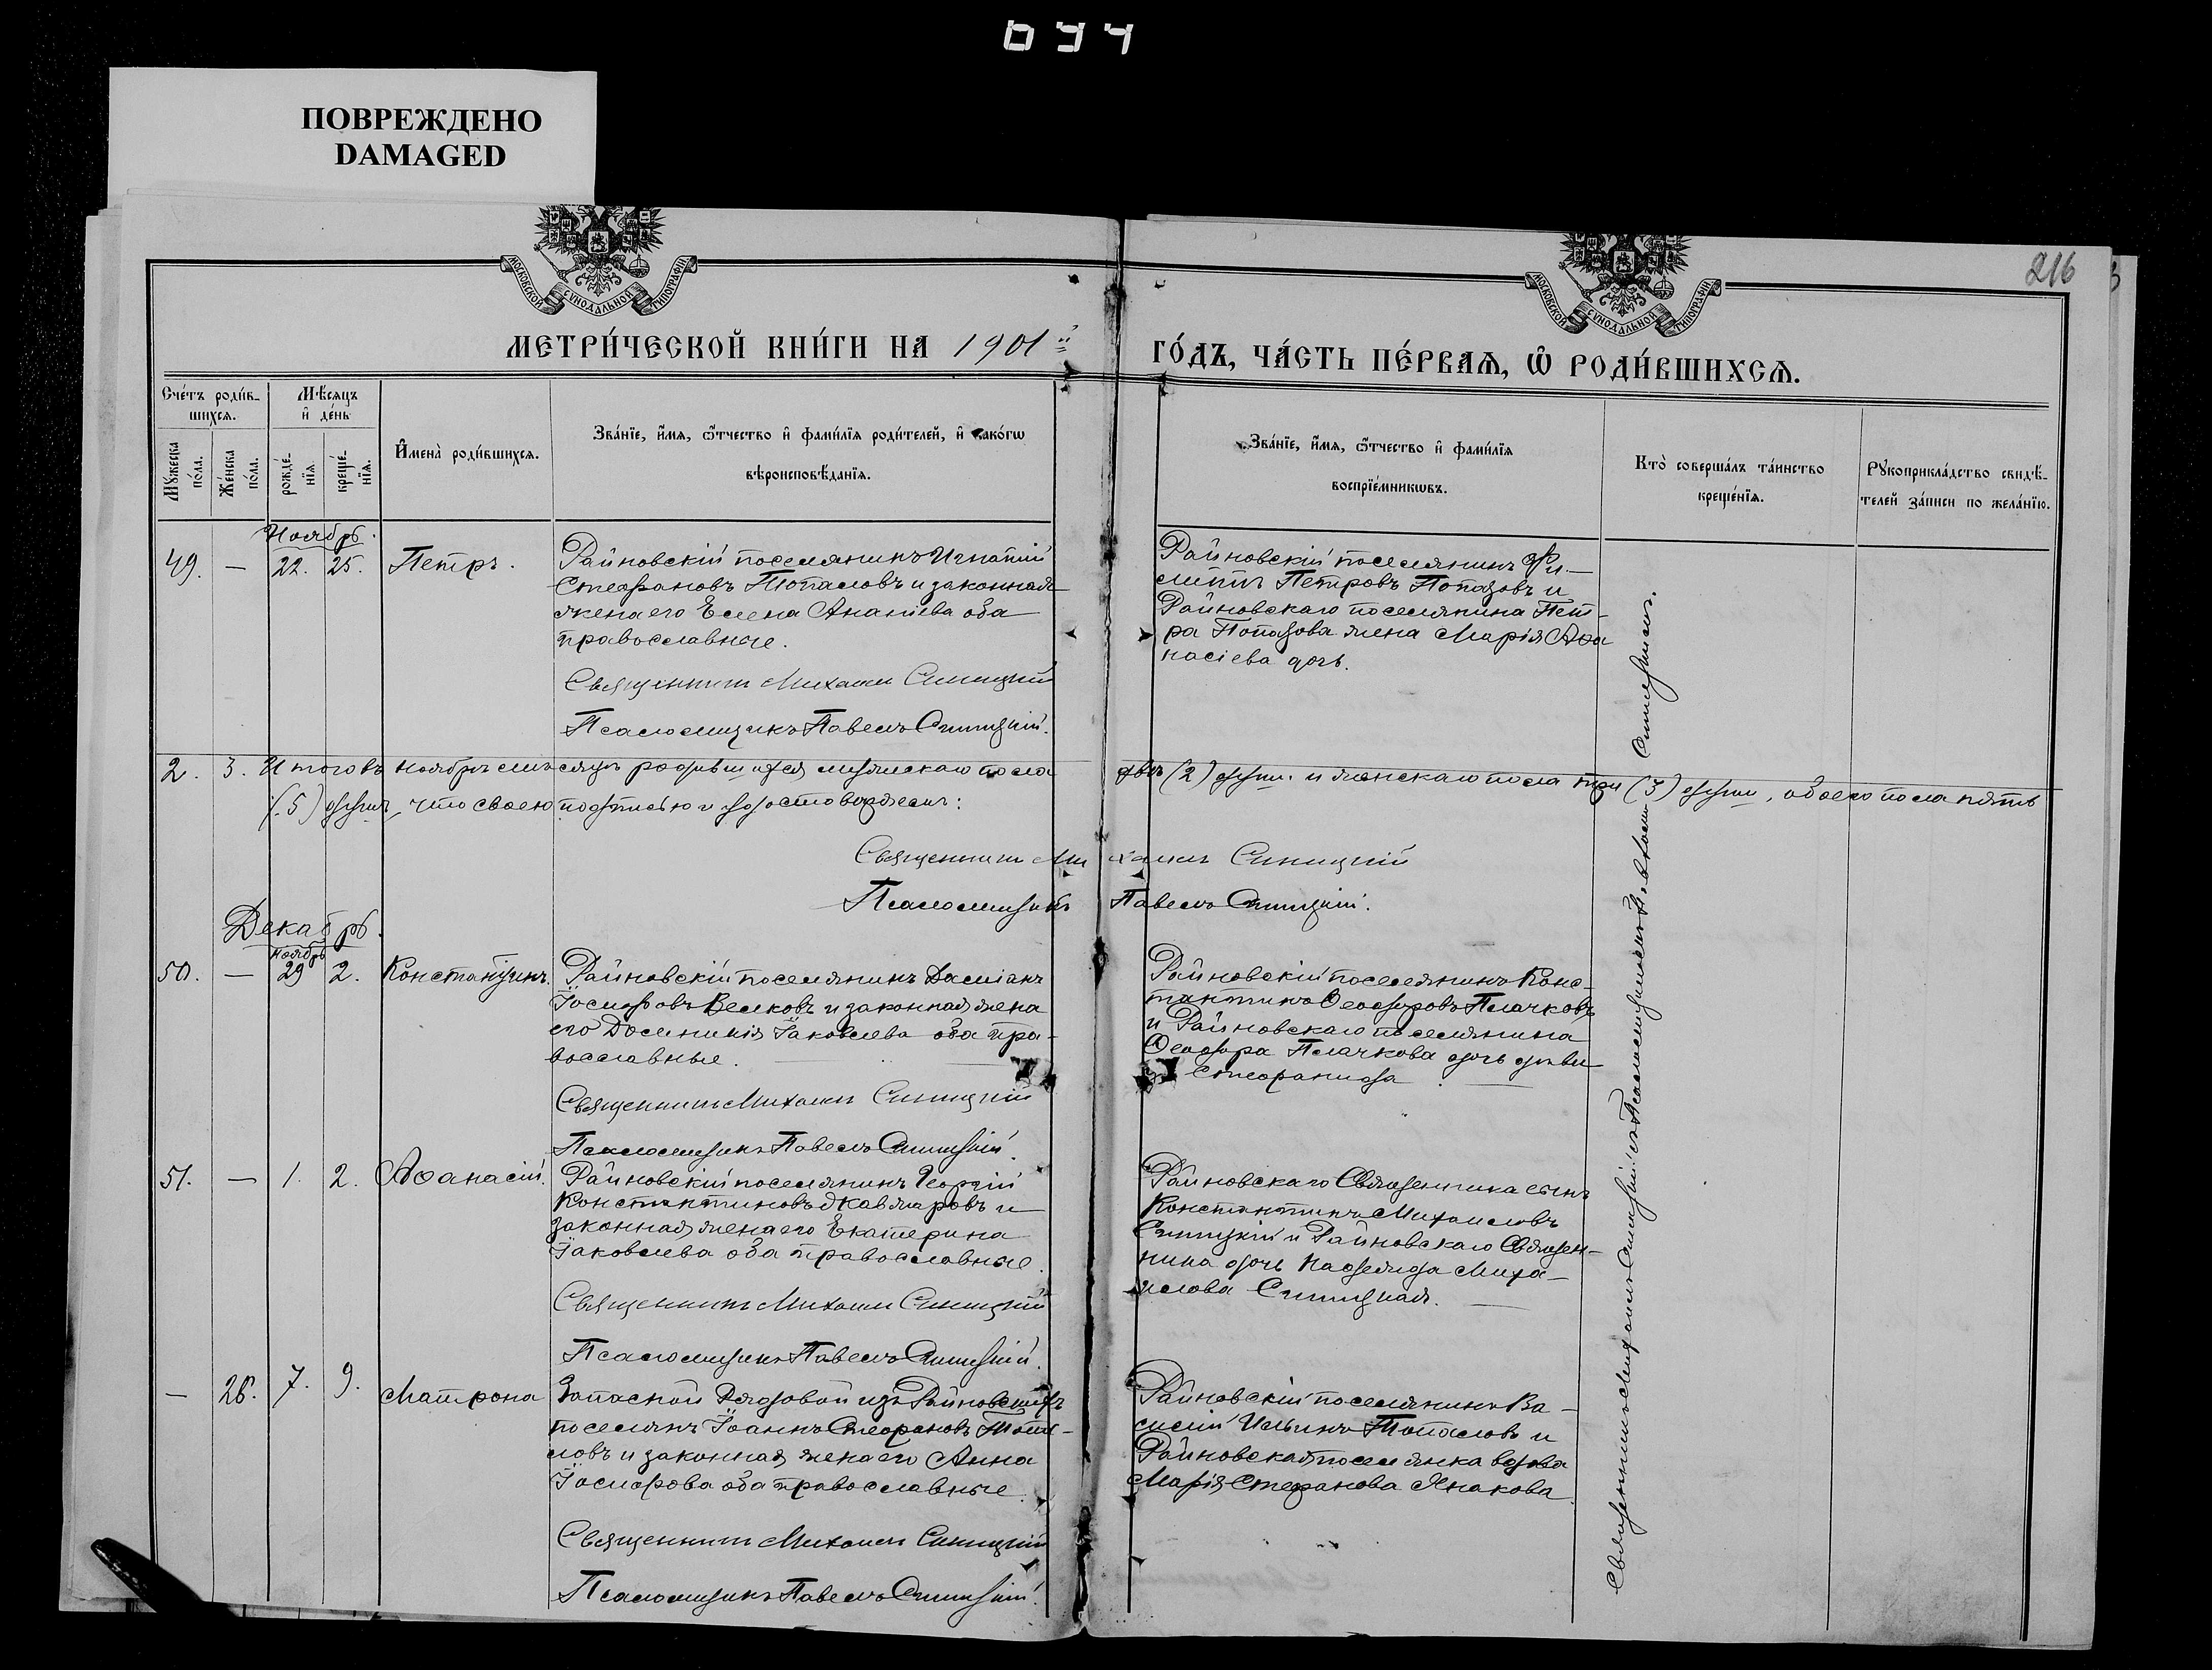 034
ПОВРЕЖДЕНО
DAMAGED
216
МОСКОВСКОЙ СѴНОДАЛЬНОЙ ТИПОГРАФІИ
МОСКОВСКОЙ СѴНОДАЛЬНОЙ ТИПОГРАФІИ
МЕТРИ́ЧЕСКОЙ КНИ́ГИ НА 1901й
ГО́ДЪ, ЧА́СТЬ ПЕ́РВАѦ, Ѡ҆ РОДИ́ВШИХСѦ.
Сче́тъ роди́в-
шихсѧ.
Мѣ́сѧцъ
и҆ де́нь
Мꙋ́жеска
по́ла.
Же́нска
по́ла.
рожде́-
нїѧ.
креще́-
нїѧ.
И҆мена̀ роди́вшихсѧ.
Зва́нїе, и҆́мѧ, ѻ҆́тчество и҆ фами́лїѧ роди́телей, и҆ како́гѡ
вѣроисповѣ́данїѧ.
Зва́нїе, и҆́мѧ, ѻ҆́тчество и҆ фами́лїѧ
воспрїе́мникѡвъ.
Кто̀ соверша́лъ та́инство
креще́нїѧ.
Рꙋкоприкла́дство свидѣ́-
телей за́писи по жела́нїю.
Ноябрь.
49. — 22. 25. Петръ.
Райновскій поселянинъ Игнатій
Стефановъ Топаловъ и законная
жена его Елена Ананіева оба
православные.
Священникъ Михаилъ Синицкій
Псаломщикъ Павелъ Синицкій.
Райновскій поселянинъ Фи-
липпъ Петровъ Попазовъ и
Райновскаго поселянина Пет-
ра Попазова жена Марія Аѳа
насіева дочь.
2. 3. Итого въ ноябрѣ мѣсяцѣ родившихся мужескаго пола два (2) души и женскаго пола три (3) души, обоего пола пять
(5) душъ, что своею подписью и удостовѣряемъ:
Священникъ Михаилъ Синицкій
Псаломщикъ Павелъ Синицкій.
Декабрь.
ноябрь
50. — 29 2. Константинъ.
Райновскій поселянинъ Даміанъ
Іосифовъ Велковъ и законная жена
его Доминикія Іаковлева оба пра-
вославные.
Священникъ Михаилъ Синицкій
Псаломщикъ Павелъ Синицкій.
Райновскій поселянинъ Конс-
тантинъ Ѳеодоровъ Плачковъ
и Райновскаго поселянина
Ѳеодора Плачкова дочь дѣви
Стефанида
51. — 1. 2. Аѳанасій.
Райновскій поселянинъ Георгій
Константиновъ Кавларовъ и
законная жена его Екатерина
Іаковлева оба православные.
Священникъ Михаилъ Синицкій
Псаломщикъ Павелъ Синицкій.
Райновскаго Священника сынъ
Константинъ Михаиловъ
Синицкій и Райновскаго Священ-
ника дочь Надежда Миха-
илова Синицкая.
— 26. 7. 9. Матрона
Запасной Рядовой изъ Райновскихъ
поселянъ Іоаннъ Стефановъ Топа-
ловъ и законная жена его Анна
Іосифова оба православные.
Священникъ Михаилъ Синицкій
Псаломщикъ Павелъ Синицкій.
Райновскій поселянинъ Ва-
силій Ильинъ Топаловъ и
Райновская поселянка вдова
Марія Стефанова Янакова.
Священникъ Михаилъ Синицкій съ Псаломщикомъ Павломъ Синицкимъ.